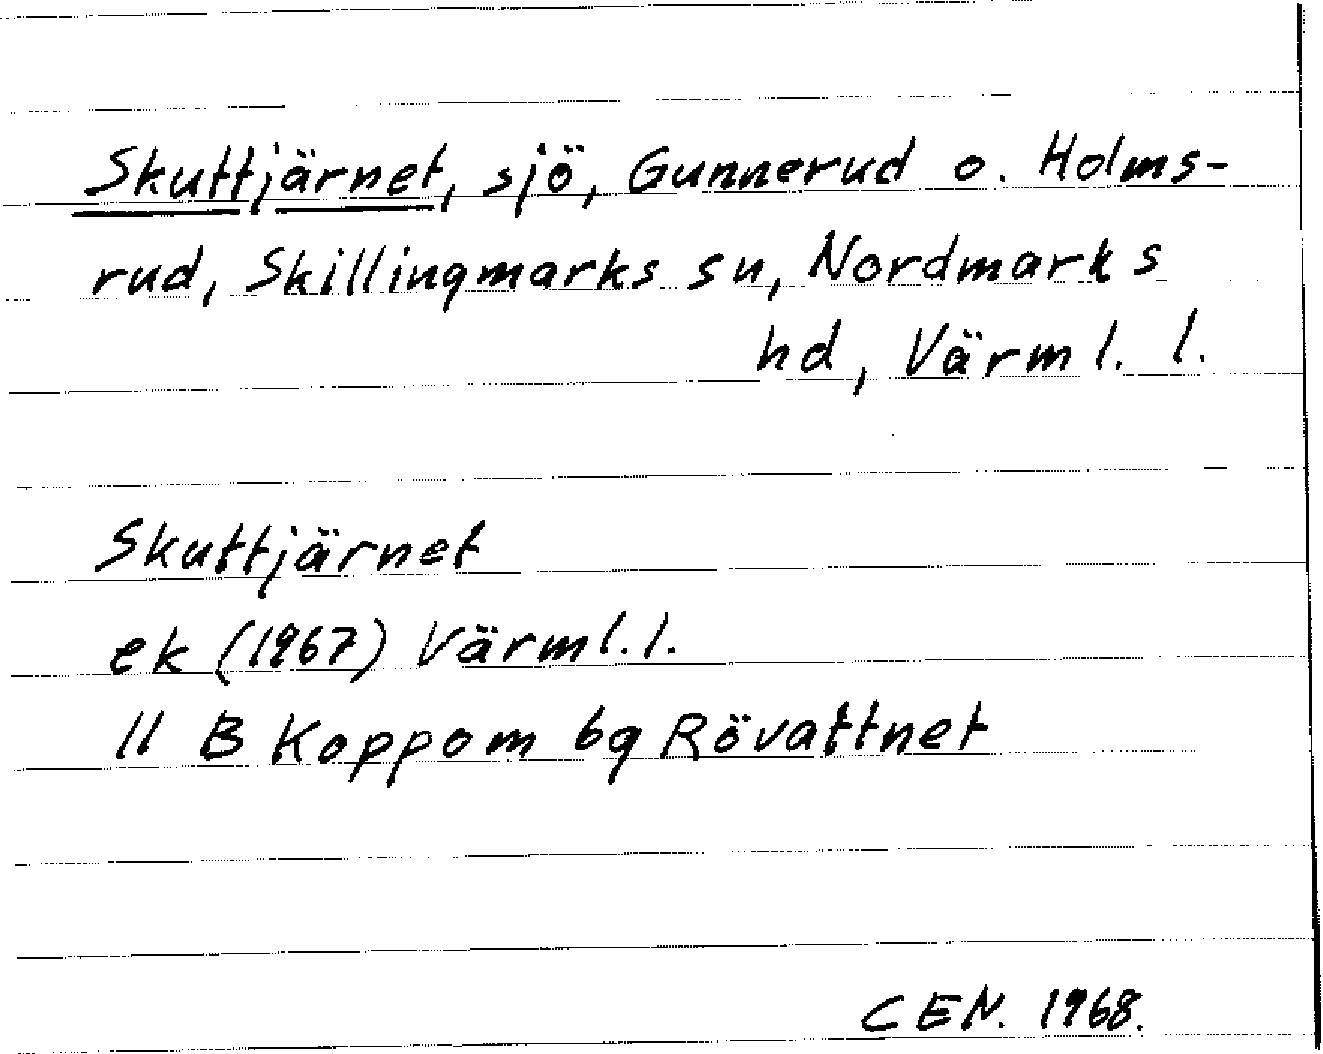 Skuttjärnet, sjö, Gunnerud o. Holms-
rud, Skillingmarks sn, Nordmarks
hd, Värml. l.
Skuttjärnet
ek (1967) Värml. l.
11 B Koppom bg Rövattnet
CEN. 1968.